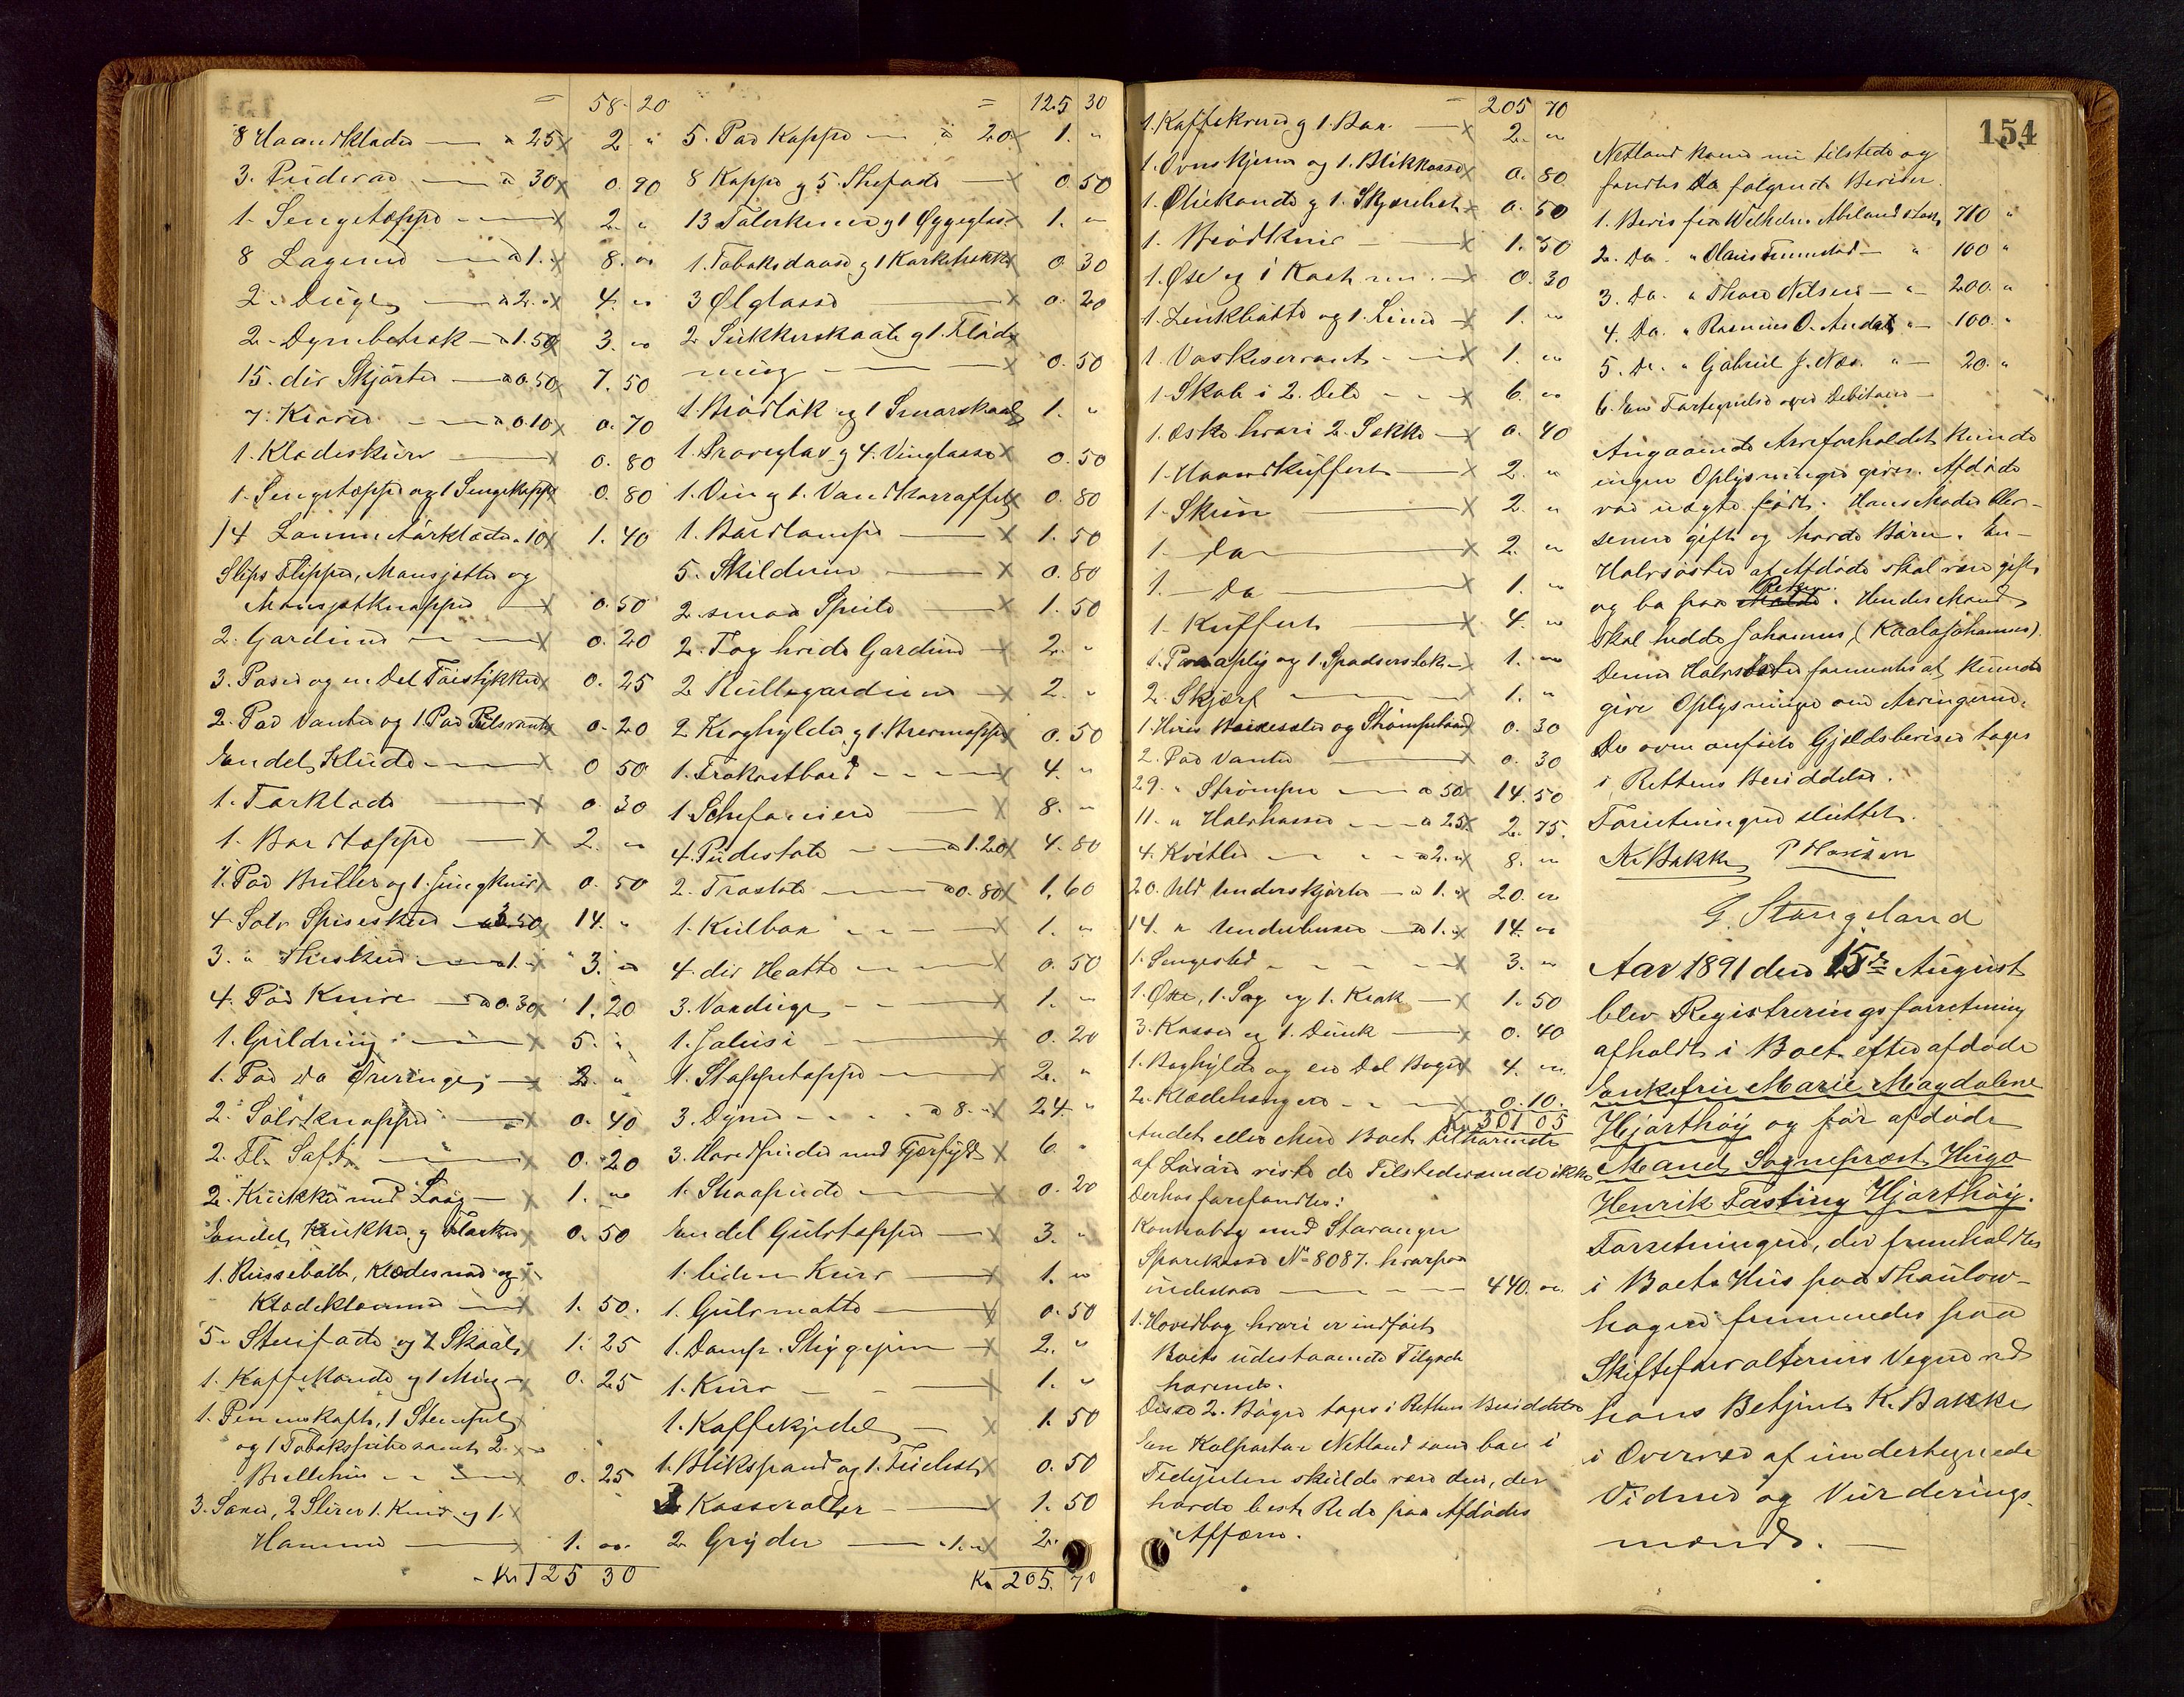 = 58. 20
8 Haandklæder — a 25 x 2 "
3. Pudevar — a 30 x 0. 90
1. Sengetæppe — x 2. "
8 Lagener — a 1. " x 8. "
2. Duge — a 2. " x 4. "
2. Dynebetræk — a 1.50 x 3. "
15. div Skjorter — a 0.50 x 7. 50
7. Kraver — a 0.10 x 0. 70
1. Klædeskurv — x 0. 80
1. Sengetæppe og 1 Sengekappe x 0. 80
14 Lommetørklæder a 10 x 1. 40
Slips Flipper, Mansjetter og
Mansjetknapper — x 0. 50
2. Gardiner — x 0. 20
3. Poser og en Del Tøistykker x 0. 25
2. Par Vanter og 1. Par Pulsvanter x 0. 20
En del Klude — x 0 50
1. Tørklæde — x 0. 30
1. Bordtæppe — x 2. "
1. Par Briller og 1. Lingkniv x 0. 50
4. Sølv Spiseskeer — a 3.50 14. "
3. " Theskeer — a 1. " x 3. "
4. Par Knive — a 0.30 x 1. 20
1. Guldring — x 5. "
1. Par Do Øreringe — x 2. "
2. Sølvknapper — x 0. 40
2. Fl. Saft — x 0. 20
2. Krukker med Laag — x 1. "
En del Krukker og Flasker 0. 50
1. Russebalt, Klædesnor og
Klædeklemmer — x 1. 50.
5. Stenfade og 2 Skaale x 1. 25
1. Kaffekande og 1 Mug — x 0. 25
1. Penneskaft, 1 Stenfad
og 1 Tobakspibe samt 2. x
Brillehus — x 0. 25
3. Saxer, 2 Slirer 1. Kniv og 1. x
Hammer — x 1. "
Kr 125 30
= 125 30
5. Par Koppe — a 20 x 1. "
8 Koppe og 5. Thefade — x 0. 50
13 Talerkener og 1 Øggeglas x 1. "
1. Tobaksdaase og 1 Korketrækker 0. 30
3 Ølglasse — x 0. 20
2. Sukkerskaale og 1. Fløde
mug — x 0. 50
1. Brødbak og 1 Smørskaal 1. "
1. Prøveglas og 4. Vinglasse x 0. 50
1. Vin og 1. Vandkarraffel x 0. 80
1. Bordlampe — x 1. 50
5. Skilderier — x 0. 80
2. smaa Speile — x 1. 50
2. Fag hvide Gardiner — x 2. "
2 Rullegardiner — x 2. "
2 Kroghylder og 1. Brevmappe x 0. 50
1. Frokostbord — x 4. "
1. Schefonniere — x 8. "
4. Pudestole — a 1.20 x 4. 80
2. Træstole — a 0.80 x 1. 60
1. Kulbox — x 1. "
4. div Hatte — x 0. 50
3. Vandduge — x 1. "
1. Jalusi — 0. 20
1. Stoppetæppe — x 2. "
3. Dyner — a 8. " x 24. "
3. Hovedpuder med Fjærfyld x 6. "
1. Straapude — x 0. 20
En del Gulvtæpper — x 3. "
1. liden Kurv — x 1. "
1. Gulvmatte — x 0. 50
1. Damp. Strygejern — x 2. "
1. Kurv — x 1. "
1. Kaffekjedel — x 1. 50
1. Blikspand og 1. Fuelist x 0. 50
3 Kasseroller — x 1. 50
2 Gryder — a 1. " x 2. "
Kr 205. 70
= 205 70
1. Kaffekvern og 1. Box — x 2. "
1. Ovnskjerm og 1. Blikkasse x 0. 80
1. Oliekande og 1. Skjærebret x 0. 50
1. Brødkniv — x 1. 50
1. Øse og 1 Kost m.m. — x 0. 30
1. Zinkbøtte og 1. Line — x 1. "
1. Vaskeservant — x 1. "
1. Skab i 2. Dele — x 6. "
1. Æske hvori 2. Sække — x 0. 40
1. Haandkuffert — x 2. "
1. Skrin — x 2. "
1. Do — x 2. "
1. Do — x 1. "
1. Kuffert — x 4. "
1. Paraply og 1. Spadserstok — 1. "
2. Skjærf — x 1. "
1. Hvid og Strømpebaand 0. 30
2. Par Vanter — 0. 30
29. " Strømper — a 50 x 14. 50
11. " Halvhoser — a 25 x 2. 75.
4. Kvitler — a 2. " x 8. "
20. Uld Underskjorter — a 1. " x 20. "
14. " Underbuxer — a 1. " x 14. "
1. Sengested — x 3. "
1. Øxe, 1. Sag og 1. Krak — x 1. 50
3. Kasser og 1. Dunk — x 0. 40
1. Boghylde og en Del Bøger x 4. "
2. Klædehængere — x 0. 10.
Kr 301 05
Andet eller mere Boet tilhørende
af Løsøre viste de Tilstedeværende ikke
Derhos forefandtes:
Kontrabog med Stavanger
Sparekasse No 8087. hvorpaa
indestaar — 440. "
1. Hovedbog hvori er indført
Boets udestaaende Tilgode
havende.
Disse 2. Bøger tages i Rettens Besiddelse
En Kolportør Netland som bor i
Tidsjulen skulde være den, der
havde bedst Rede paa Afdødes
Affærer.
154
Netland kom nu tilstede og
fandtes da følgende Beviser.
1. Bevis fra Wilhelm Abeland stort 710 "
2. Do. " Olaus Tunnstad — " 100 "
3. Do. " Thore Nelsen — " 200. "
4. Do. " Rasmus O. Andal " — 100. "
5. Do. " Gabriel J. Næs. " — 20. "
6. En Fortegnelse over Debitorer —
Angaaende Arveforholdet kunde
ingen Oplysninger gives. Afdøde
var uægte født. Hans Moder blev
senere gift og havde Børn. En
Halvsøster af Afdøde skal være gift
og bo paa . Hendes Mand
skal hedde Johannes (Kaala Johannes).
Denne Halvsøster formentes at kunde
give Oplysninger om Arvingerne.
De oven anførte Gjældsbeviser tages
i Rettens Besiddelse.
Forretningen sluttet.
K Bakke P Hansen
G. Stangeland
Aar 1891 den 15de August
blev Registreringsforretning
afholdt i Boet efter afdøde
Enkefru Marie Magdalene
Hjorthøy og før afdøde
Mand, Sogneprest Hugo
Henrik Fasting Hjorthøy.
Forretningen, der fremholdtes
i Boets Hus paa Thaulow-
hagen fremmedes paa
Skifteforvalterens Vegne ved
hans Betjent K. Bakke
i Overvær af undertegnede
Vidner og Vurderings-
mænd. —